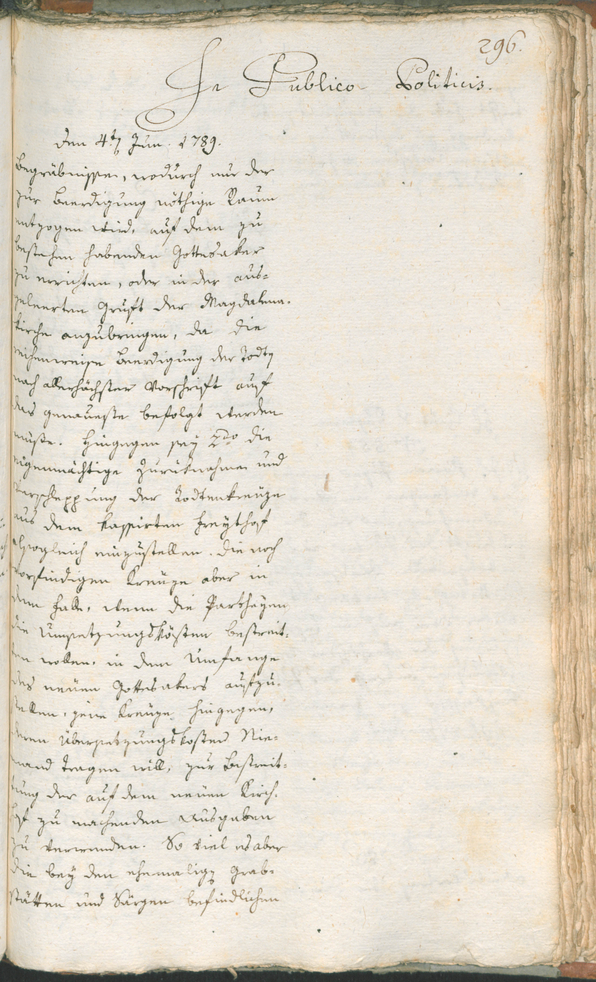 296.
In Publico Politicis.
Den 4ten Jun. 1789.
Begräbnissen, wodurch nur der
zur Beerdigung nöthige Raum
entzogen wird, auf dem zu
bestehen habenden Gottesaker
zu errichten, oder in der aus-
geleerten Gruft der Magdalena-
kirche anzubringen, da die
reihenweise Beerdigung der Todten
nach allerhöchster Vorschrift auf
das genaueste befolgt werden
müsste. Hingegen sey 2do die
eigenmächtige Zurüknahme und
Verschleppung der Todtenkreuze
aus dem kassirten Freythof
alsogleich einzustellen. die noch
vorfindigen Kreuze aber in
dem Falle, wenn die Partheyen
die Umsetzungskösten bestreit-
ten wollen, in dem Umfange
des neuen Gottesakers aufzu-
stellen, jene Kreuze hingegen,
deren Übersetzungskosten Nie-
mand tragen will, zur Bestreit-
tung der auf dem neuen Kirch-
hof zu machenden Ausgaben
zu verwenden. So viel es aber
die bey den ehemaligen Grab-
stätten und Särgen befindlichen